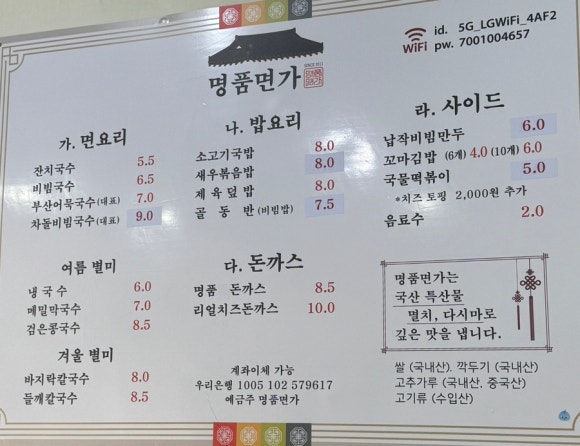 id. 5G_LGWiFi_4AF2
WiFi pw. 7001004657
SINCE 2011
명품면가
가. 면요리
잔치국수 5.5
비빔국수 6.5
부산어묵국수(대표) 7.0
차돌비빔국수(대표) 9.0
여름 별미
냉국수 6.0
메밀막국수 7.0
검은콩국수 8.5
겨울 별미
바지락칼국수 8.0
들깨칼국수 8.5
나. 밥요리
소고기국밥 8.0
새우볶음밥 8.0
제육덮밥 8.0
골동반(비빔밥) 7.5
다. 돈까스
명품 돈까스 8.5
리얼치즈돈까스 10.0
계좌이체 가능
우리은행 1005 102 579617
예금주 명품면가
라. 사이드
납작비빔만두 6.0
꼬마김밥 (6개) 4.0 (10개) 6.0
국물떡볶이 5.0
*치즈 토핑 2,000원 추가
음료수 2.0
명품면가는
국산 특산물
멸치, 다시마로
깊은 맛을 냅니다.
쌀 (국내산). 깍두기 (국내산)
고추가루 (국내산, 중국산)
고기류 (수입산)